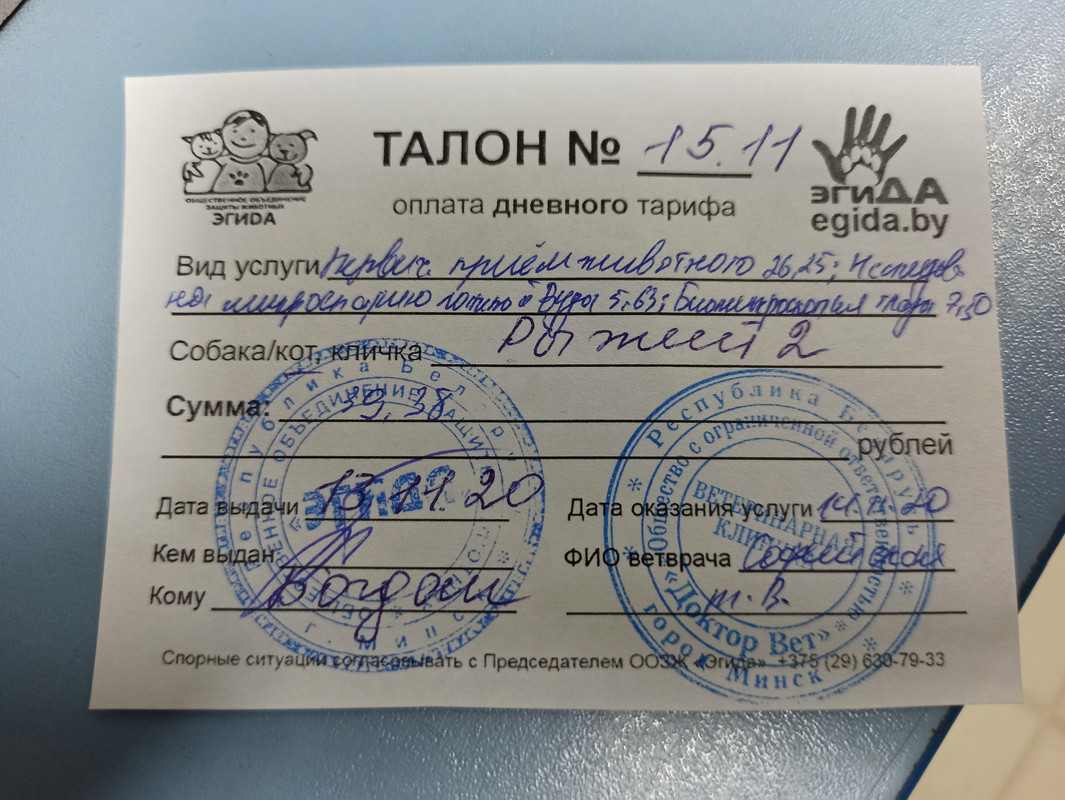 ТАЛОН № 15.11
оплата дневного тарифа
ОБЩЕСТВЕННОЕ ОБЪЕДИНЕНИЕ
ЗАЩИТЫ ЖИВОТНЫХ
ЭГИДА
эгиДА
egida.by
Вид услуги Первич. приём животного 26,25; Исследов.
на микроспорию лампой Вуда 5,63; Биомикроскопия глаза 7,50
Собака/кот, кличка Рыжий 2
Сумма: 39,38
рублей
Дата выдачи 13.11.20
Дата оказания услуги 14.11.20
Кем выдан
ФИО ветврача
Кому Богдан
т.В.
Спорные ситуации согласовывать с Председателем ООЗЖ «Эгида» +375 (29) 630-79-33
Республика Беларусь
ОБЪЕДИНЕНИЕ ЗАЩИТЫ
«ЭГИДА»
г. Минск
Республика Беларусь
Общество с ограниченной ответственностью
ВЕТЕРИНАРНАЯ
КЛИНИКА
«Доктор Вет»
город Минск